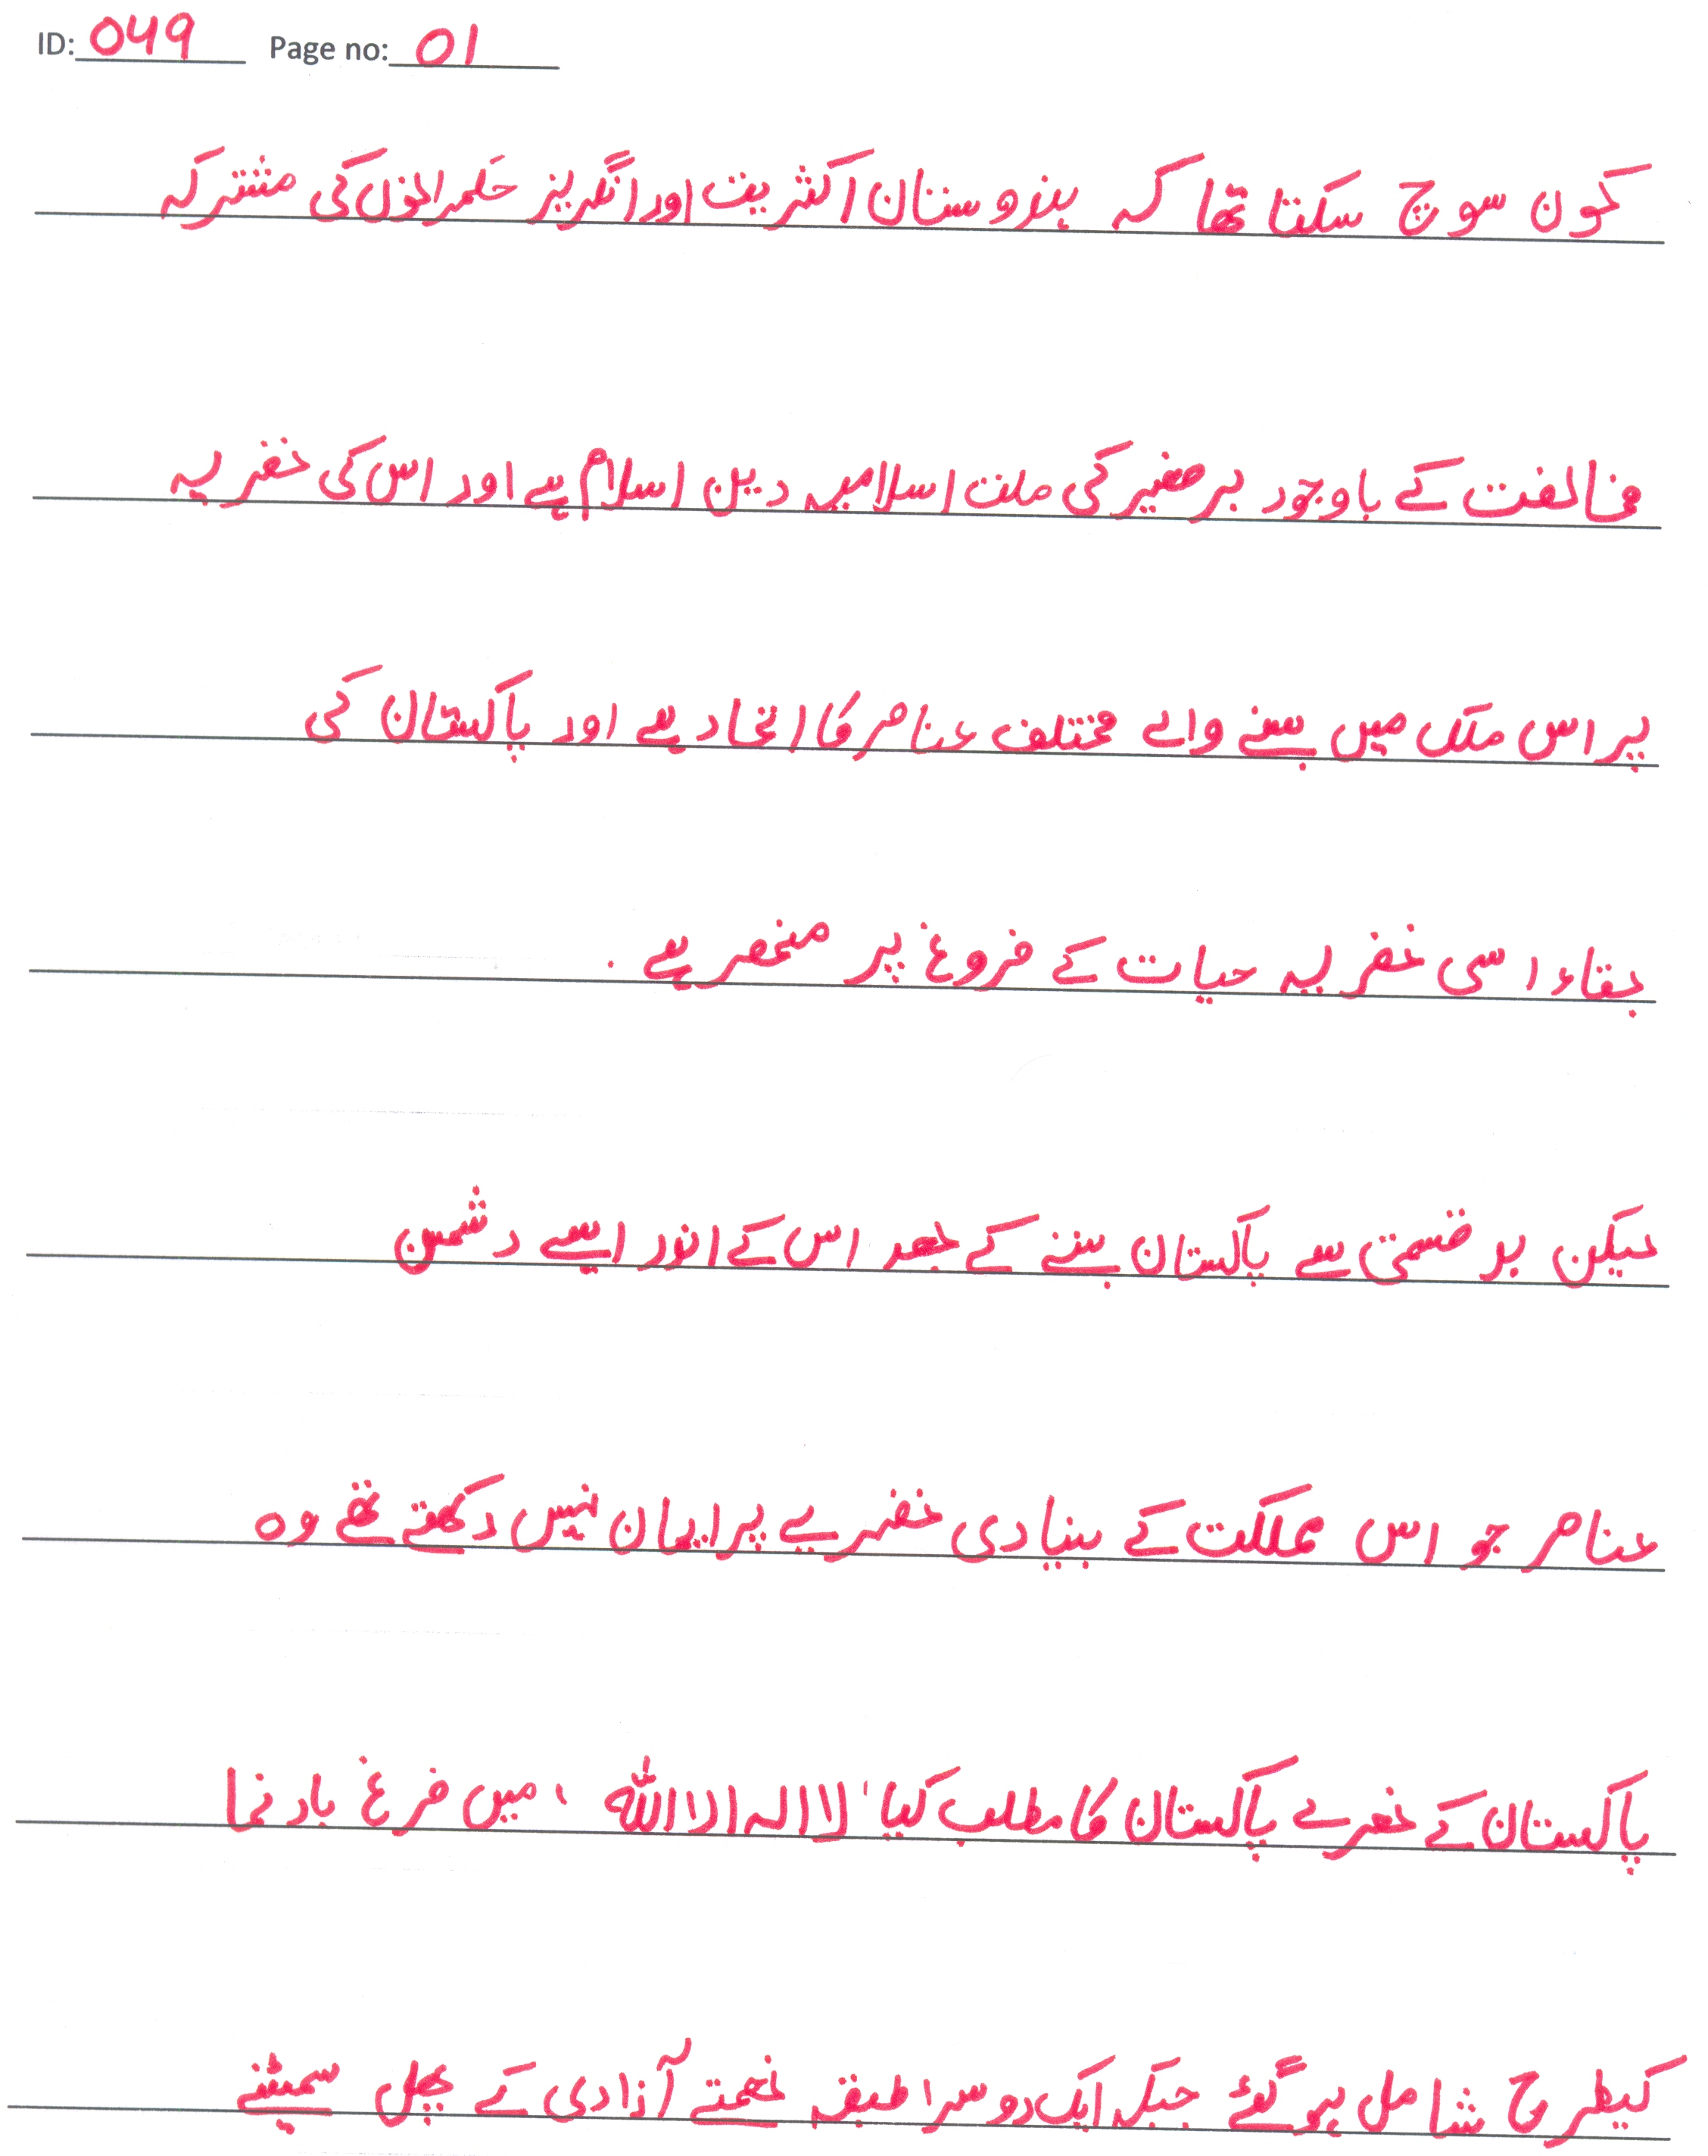 ID: 049 Page no: 01
کون سوچ سکتا تھا کہ ہندوستان اکثریت اور انگریز حکمرانوں کی مشترکہ
مخالفت کے باوجود برصغیر کی ملت اسلامیہ دین اسلام ہے اور اس کی نظریہ
پر اس ملک میں بسنے والے مختلف عناصر کا اتحاد ہے اور پاکستان کی
بقاء اسی نظریہ حیات کے فروغ پر منحصر ہے .
لیکن بد قسمتی سے پاکستان بننے کے بعد اس کے اندر ایسے دشمن
عناصر جو اس مملکت کے بنیادی نظریے پر ایمان نہیں رکھتے تھے وہ
پاکستان کے نعرے پاکستان کا مطلب کیا 'لا الہ الا اللہ ، میں فرغ باد نما
کیطرح شامل ہو گئے جبکہ ایک دوسرا طبقہ نعمتے آزادی کے پھل سمیٹنے